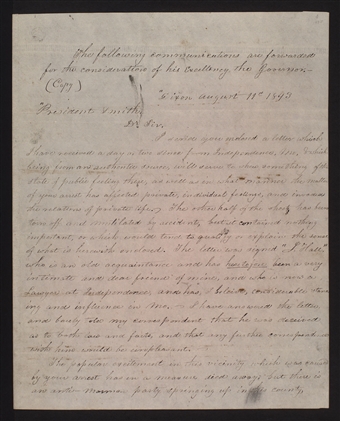 The following communications are forwarded
for the consideration of his excellency, the Governor—
(Copy)
Dixon August 11th 1843
President Smith,
Dr Sir,
I send you enclosed a letter which
I have received a day or two since from Independence, Mo, which
being from an authentic source, will serve to show something of the
state of public feeling there, as well as in what manner the matter
of your arrest has affected private, individual feelings, and
the relations of private life. The other half of the sheet has been
torn off and mutilated by accident, but it contained nothing
important, or which would tend to qualify or explain the sense
of what is herewith enclosed. The letter was signed "J. Hall"
who is an old acquaintance and has heretofore been a very
intimate and dear friend of mine, and who is now a
Lawyer at Independence, and has, I believe, considerable stand
ing and influence in Mo. I have answered the letter
and barely told my correspondent that he was deceived
as to both law and facts, and that any further correspond
with him would be unpleasant.
The popular excitement in this vicinity which was caused
by your arrest has in a measure died away, but there is
an anti Mormon party springing up in the county,